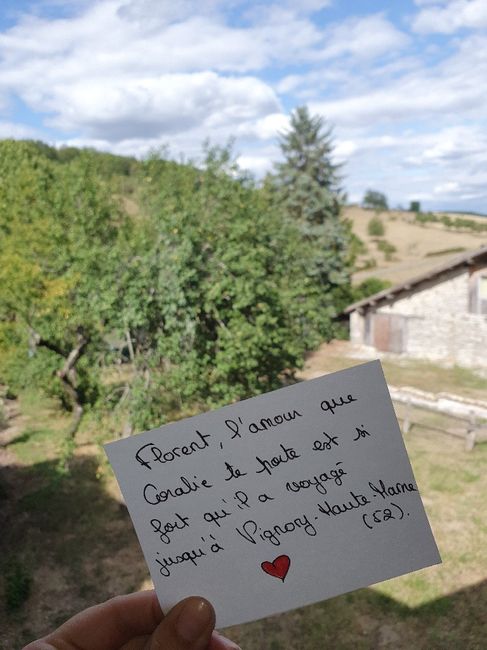 Florent, l'amour que
Coralie te porte est si
fort qu'il a voyagé
jusqu'à Vignory-Haute-Marne
(52).